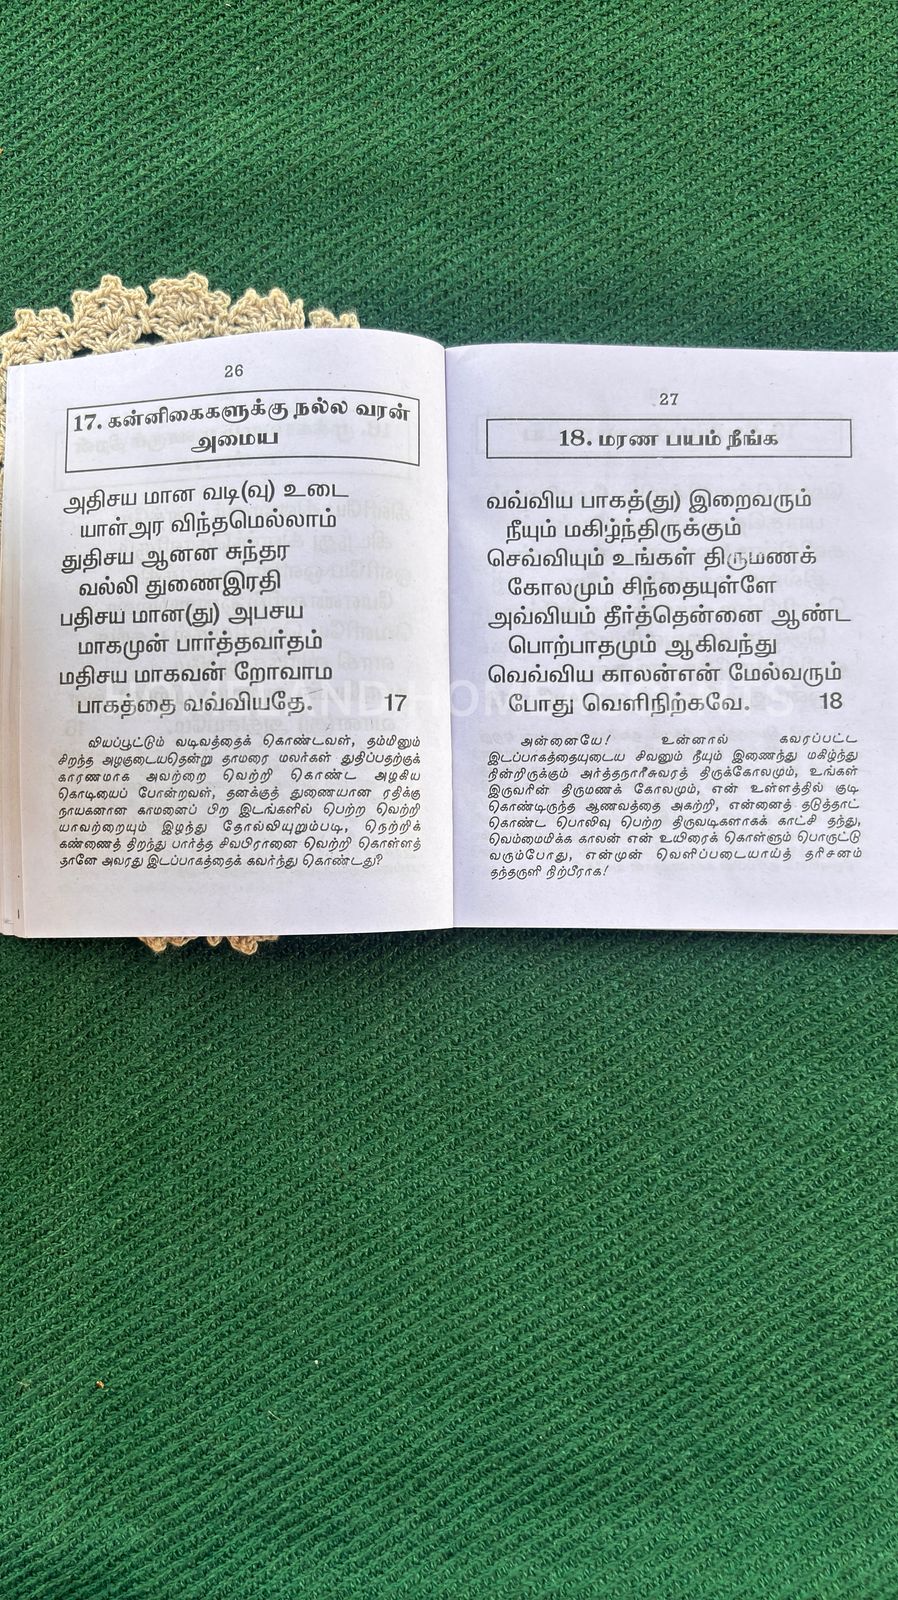 26
17. கன்னிகைகளுக்கு நல்ல வரன்
அமைய
அதிசய மான வடி(வு) உடை
யாள்அர விந்தமெல்லாம்
துதிசய ஆனன சுந்தர
வல்லி துணைஇரதி
பதிசய மான(து) அபசய
மாகமுன் பார்த்தவர்தம்
மதிசய மாகவன் றோவாம
பாகத்தை வவ்வியதே. 17
வியப்பூட்டும் வடிவத்தைக் கொண்டவள், தம்மினும்
சிறந்த அழகுடையதென்று தாமரை மலர்கள் துதிப்பதற்குக்
காரணமாக அவற்றை வெற்றி கொண்ட அழகிய
கொடியைப் போன்றவள், தனக்குத் துணையான ரதிக்கு
நாயகனான காமனைப் பிற இடங்களில் பெற்ற வெற்றி
யாவற்றையும் இழந்து தோல்வியுறும்படி, நெற்றிக்
கண்ணைத் திறந்து பார்த்த சிவபிரானை வெற்றி கொள்ளத்
தானே அவரது இடப்பாகத்தைக் கவர்ந்து கொண்டது?
27
18. மரண பயம் நீங்க
வவ்விய பாகத்(து) இறைவரும்
நீயும் மகிழ்ந்திருக்கும்
செவ்வியும் உங்கள் திருமணக்
கோலமும் சிந்தையுள்ளே
அவ்வியம் தீர்த்தென்னை ஆண்ட
பொற்பாதமும் ஆகிவந்து
வெவ்விய காலன்என் மேல்வரும்
போது வெளிநிற்கவே. 18
அன்னையே! உன்னால் கவரப்பட்ட
இடப்பாகத்தையுடைய சிவனும் நீயும் இணைந்து மகிழ்ந்து
நின்றிருக்கும் அர்த்தநாரீசுவரத் திருக்கோலமும், உங்கள்
இருவரின் திருமணக் கோலமும், என் உள்ளத்தில் குடி
கொண்டிருந்த ஆணவத்தை அகற்றி, என்னைத் தடுத்தாட்
கொண்ட பொலிவு பெற்ற திருவடிகளாகக் காட்சி தந்து,
வெம்மைமிக்க காலன் என் உயிரைக் கொள்ளும் பொருட்டு
வரும்போது, என்முன் வெளிப்படையாய்த் தரிசனம்
தந்தருளி நிற்பீராக!